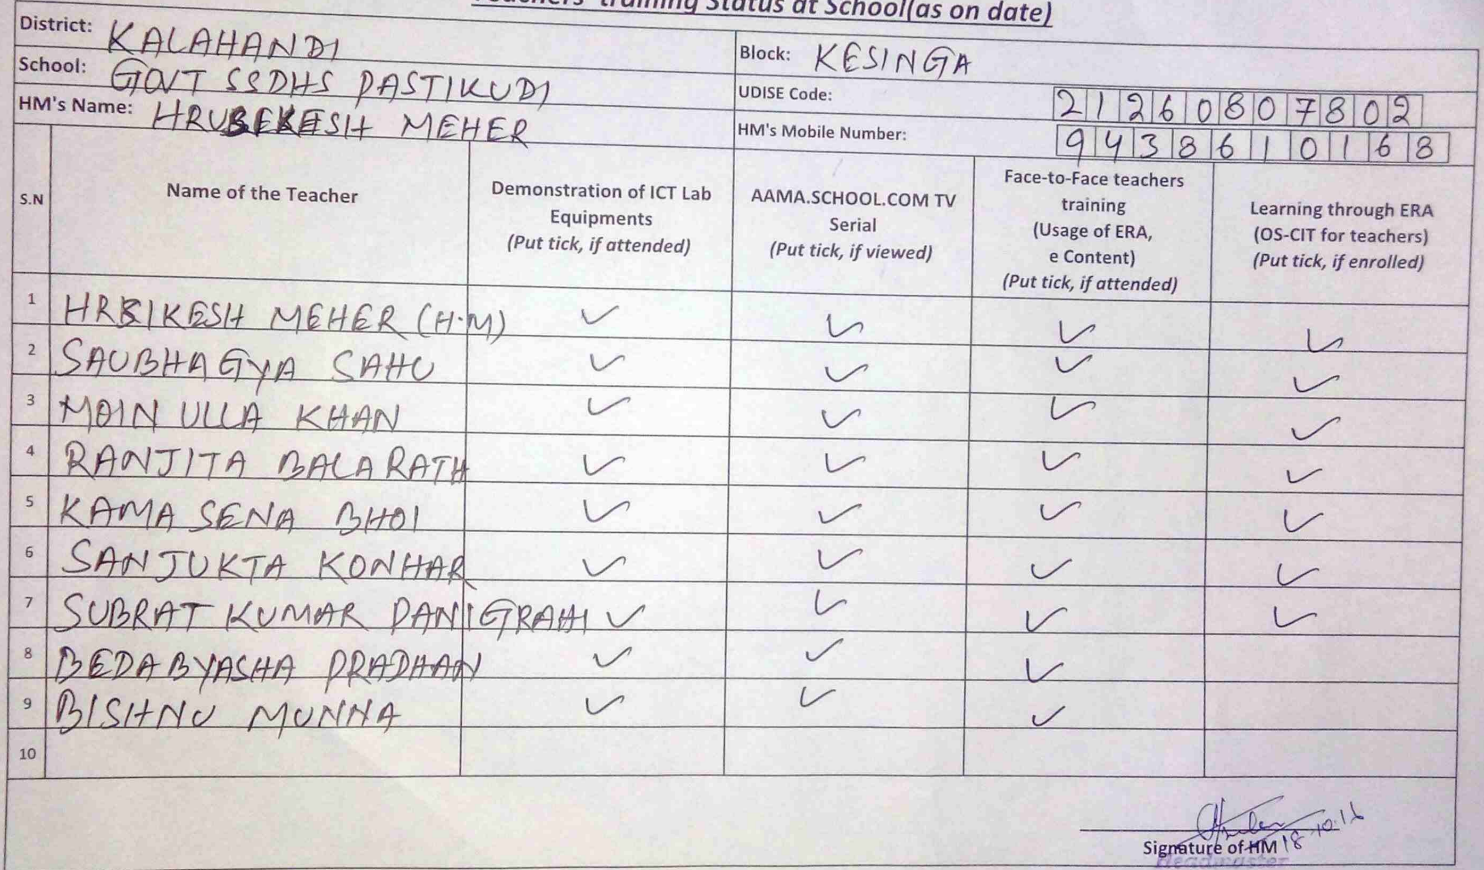 Teachers' training Status at School(as on date)
District: KALAHANDI
Block: KESINGA
School: GOVT SSDHS PASTIKUDI
UDISE Code: 21260807802
HM's Name: HRUSEKESH MEHER
HM's Mobile Number: 9438610168
S.N
Name of the Teacher
Demonstration of ICT Lab
Equipments
(Put tick, if attended)
AAMA.SCHOOL.COM TV
Serial
(Put tick, if viewed)
Face-to-Face teachers
training
(Usage of ERA,
e Content)
(Put tick, if attended)
Learning through ERA
(OS-CIT for teachers)
(Put tick, if enrolled)
1 HRSIKESH MEHER (H.M) ✓ ✓ ✓ ✓
2 SAUBHAGYA SAHU ✓ ✓ ✓ ✓
3 MOIN ULLA KHAN ✓ ✓ ✓ ✓
4 RANJITA BALA RATH ✓ ✓ ✓ ✓
5 KAMA SENA BHOI ✓ ✓ ✓ ✓
6 SANJUKTA KONHAR ✓ ✓ ✓ ✓
7 SUBRAT KUMAR PANIGRAHI ✓ ✓ ✓ ✓
8 BEDABYASHA PRADHAN ✓ ✓ ✓
9 BISHNU MUNNA ✓ ✓ ✓
10
Signature of HM 18.10.16
Headmaster